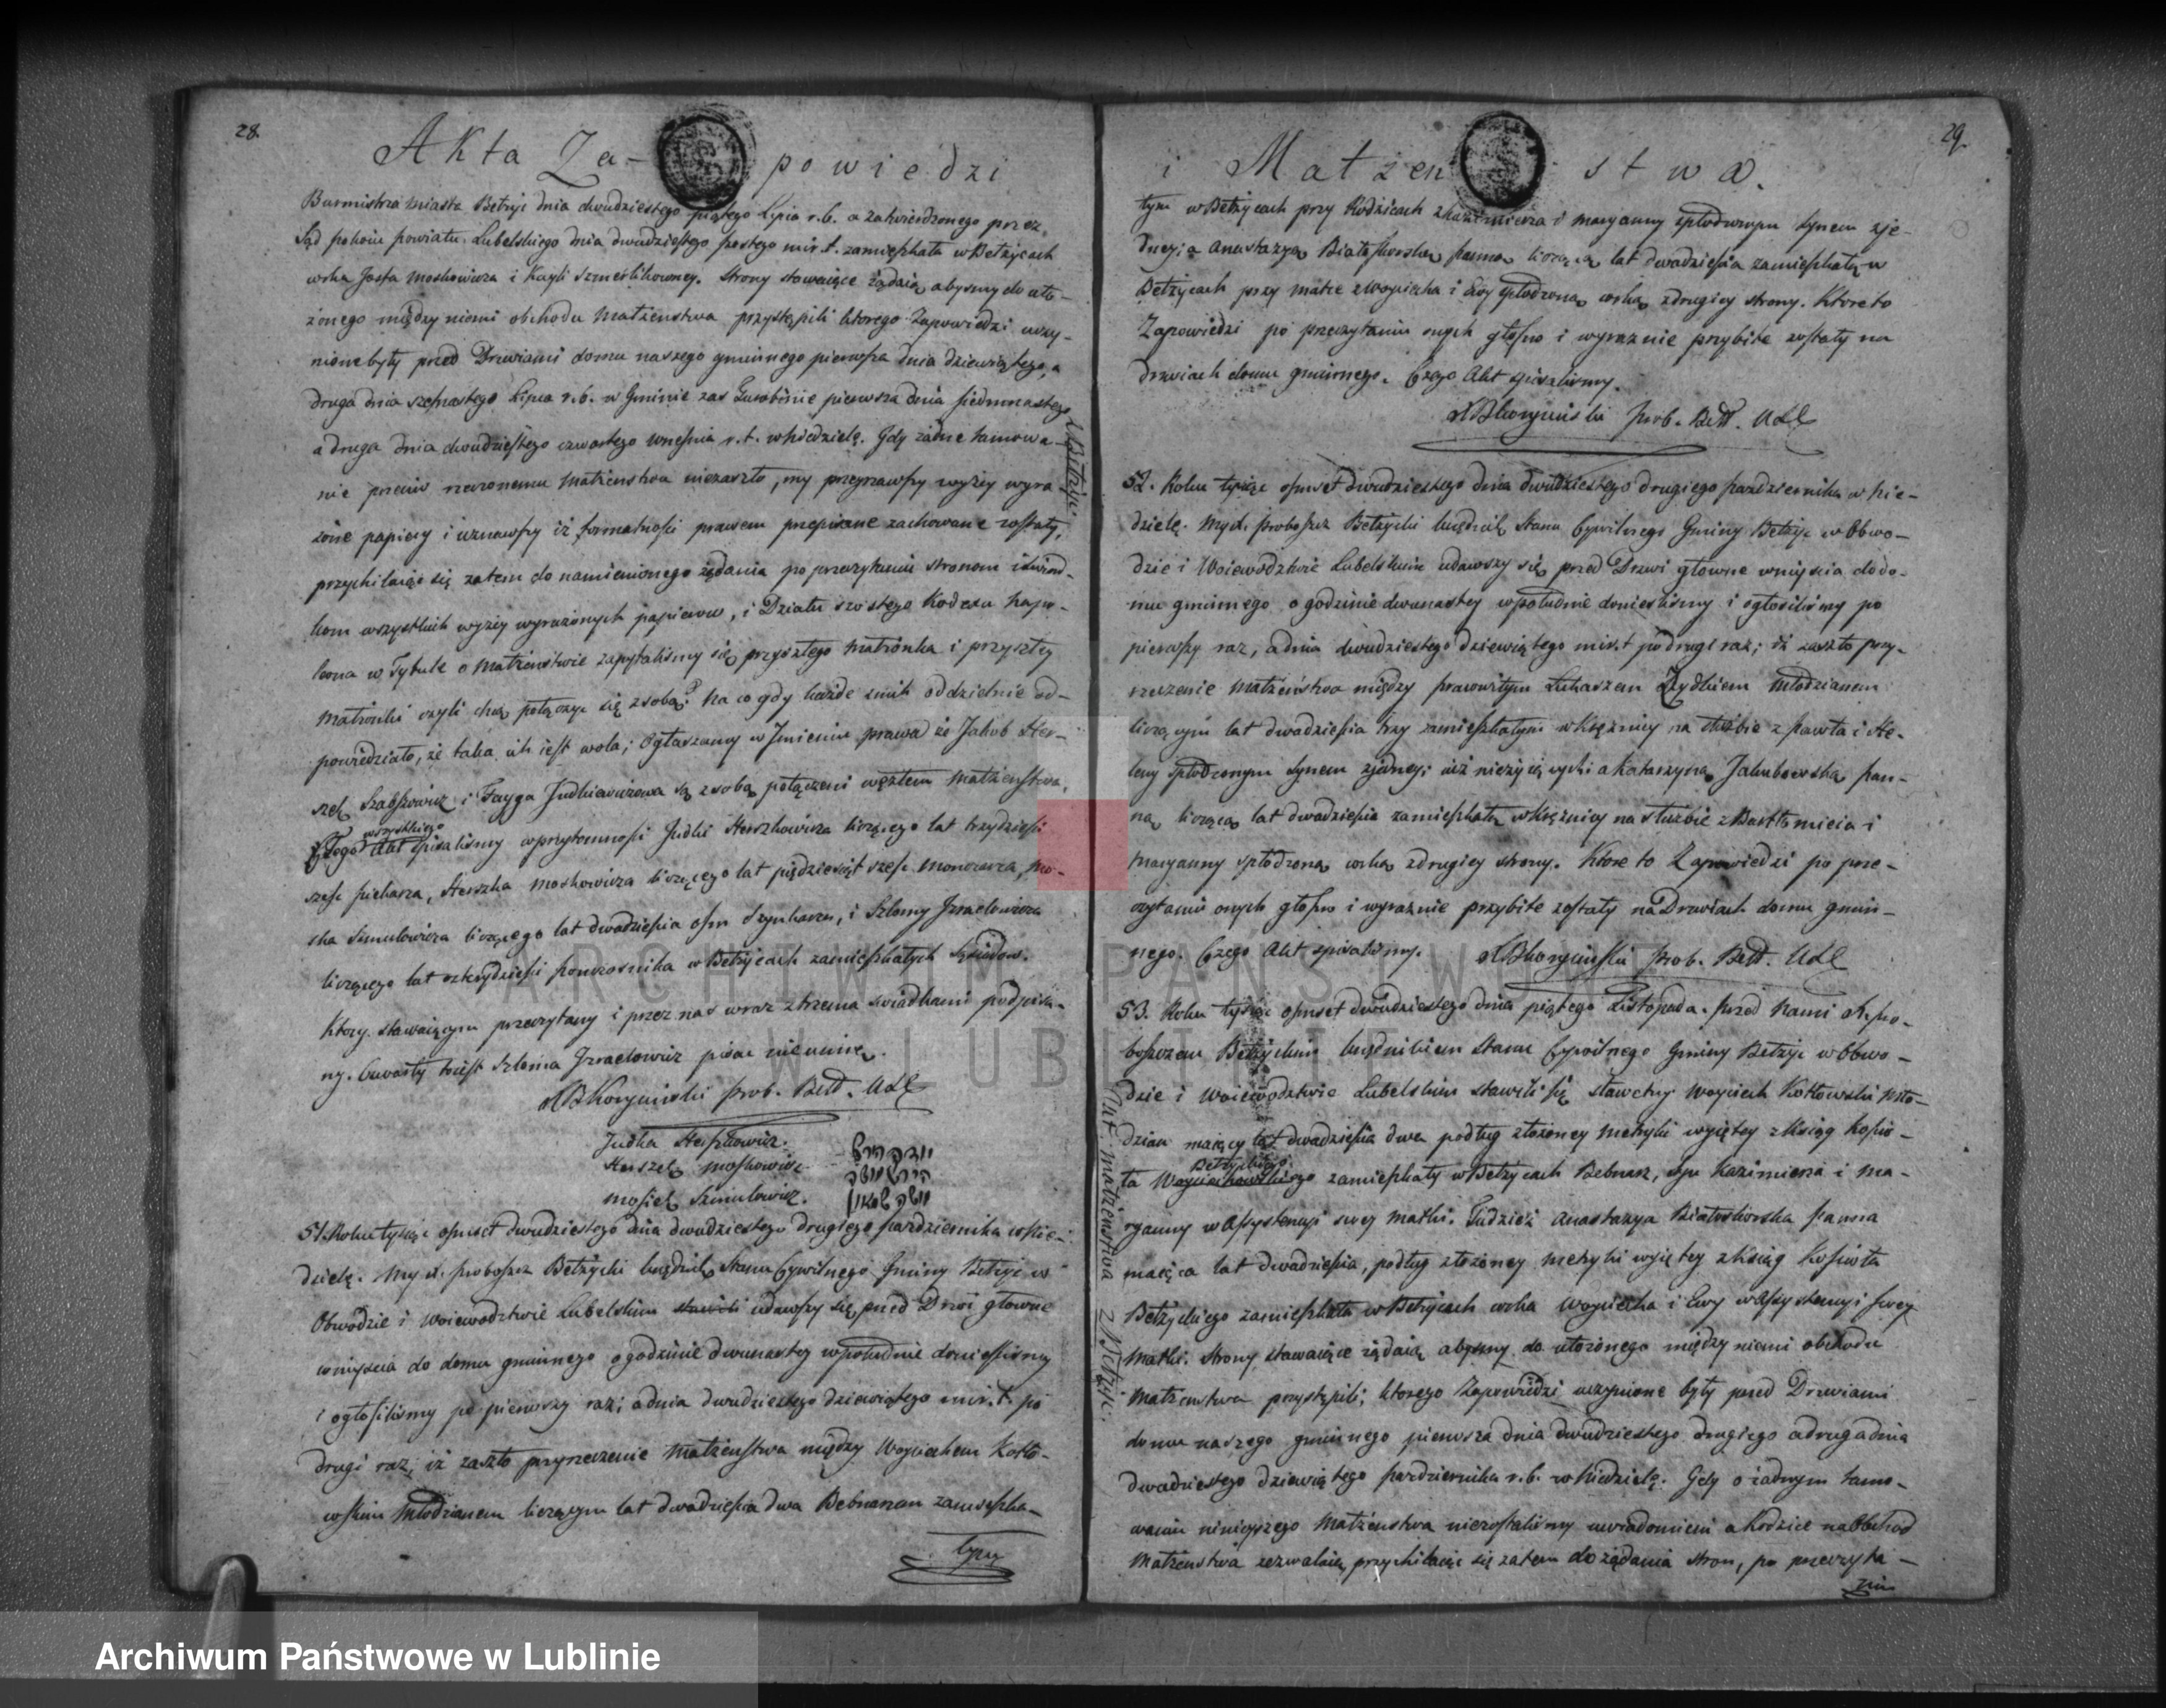 28.
Akta Za- powiedzi
Burmistrza miasta Bełżyc dnia dwudziestego piątego Lipca r. b. a zatwierdzonego przez
Sąd pokoiu powiatu Lubelskiego dnia dwudziestego szostego mies. t. zamieszkała w Bełżycach
corka Josfa Moskowicza i Kayli Szmerlikowney. Strony stawaiące żądaią abysmy do uło-
żonego między niemi obchodu Małżeństwa przystąpili ktorego Zapowiedzi uczy-
nione były przed Drzwiami domu naszego gminnego pierwsza dnia dziewiątego, a
druga dnia szesnastego Lipca r. b. w Gminie zas pierwsza dnia siedmnastego
a druga dnia dwudziestego czwartego Wrzesnia r. t. w Niedzielę. Gdy żadne tamowa-
nie przeciw rzeczonemu Małżenstwu niezaszło, my przeyrzawszy wyżey wyra
żone papiery i uznawszy iż formalności prawem przepisane zachowane zostały,
przychilaiąc się zatem do namienionego żądania po przeczytaniu stronom i świad-
kom wszystkich wyżey wyrażonych papierow, i Działu szostego Kodexu Napo-
leona w Tytule o Małżeństwie zapytaliśmy się przyszłego Małżonka i przyszłey
Małżonki czyli chcą połączyc się z sobą? Na co gdy każde z nich oddzielnie od-
powiedziało, że taka ich iest wola; Ogłaszamy w Jmieniu prawa że Jakob Her-
szek Szabsiowicz i Fayga Judkiewiczowa są z sobą połączeni węzłem Małżeństwa.
wszystkiego
Tego Akt spisaliśmy w przytomności Judki Herszkowicza liczącego lat trzydzieści
szesc piekarza, Herszka Moskowicza liczącego lat piędziesiąt szesc Mo-
ska Szmulowicza liczącego lat dwadzieścia osm Szynkarza, i Szlomy Jzraelowicza
liczącego lat czterydzieści powroznika w Bełżycach zamieszkałych Sąsiadow.
Ktory stawaiącym przeczytany i przez nas wraz z trzema swiadkami podpisa-
ny. Czwarty toiest Szloma Jzraelowicz pisac nie umie.
prob. Bełż. USC
Judka Herszkowicz. יודקה הירש
Herszek Moskowicz הירש מושה
Mosiek Szmulowicz. מושה שמאון
51. Roku tysiąc osmset dwudziestego dnia dwudziestego drugiego pazdziernika w Nie-
dzielę. My X. proboszcz Bełżycki Urzędnik Stanu Cywilnego Gminy Bełżyc w
Obwodzie i Woiewodztwie Lubelskim stawili udawszy się przed Drzwi głowne
wniyscia do domu gminnego o godzinie dwunastey w południe doniesliśmy
i ogłosiliśmy po pierwszy raz; a dnia dwudziestego dziewiątego mies. t. po
drugi raz, iż zaszło przyrzeczenie Małżeństwa między Woyciechem Kotło-
wskim Młodzianem liczącym lat dwadzieścia dwa Bednarzem zamieszka-
łym
z Bełżyc.
29.
i Małżen- stwa.
tym w Bełżycach przy Rodzicach z Kazimierza i Maryanny spłodzonym Synem z je-
dney; a Anastazyą Białoskorską panną liczącą lat dwadzieścia zamieszkałą w
Bełżycach przy Matce z Woyciecha i Ewy spłodzoną corką z drugiey strony. Ktore to
Zapowiedzi po przeczytaniu onych głośno i wyraznie przybite zostały na
drzwiach domu gminnego. Czego Akt spisaliśmy.
prob. Bełż. USC
52. Roku tysiąc osmset dwudziestego dnia dwudziestego drugiego pazdziernika w Nie-
dzielę. My X. proboszcz Bełżycki Urzędnik Stanu Cywilnego Gminy Bełżyc w Obwo-
dzie i Woiewodztwie Lubelskim udawszy się przed Drzwi głowne wniyscia do do-
mu gminnego o godzinie dwunastey w południe doniesliśmy i ogłosiliśmy po
pierwszy raz, a dnia dwudziestego dziewiątego mies. t. po drugi raz; iż zaszło przy-
rzeczenie Małżeństwa między pracowitym Łukaszem Zydkiem Młodzianem
liczącym lat dwadzieścia trzy zamieszkałym w Krężnicy na służbie z Pawła i He-
leny spłodzonym Synem z jedney; już nieżyiących; a Katarzyną Jakubowską pan-
ną liczącą lat dwadzieścia zamieszkałą w Krężnicy na służbie z Bartłomieia i
Maryanny spłodzoną corką z drugiey strony. Ktore to Zapowiedzi po prze-
czytaniu onych głośno i wyraznie przybite zostały na Drzwiach domu gmin-
nego. Czego Akt spisaliśmy. prob. Bełż. USC
53. Roku tysiąc osmset dwudziestego dnia piątego Listopada. Przed Nami X. pro-
boszczem Bełżyckim Urzędnikiem Stanu Cywilnego Gminy Bełżyc w Obwo-
dzie i Woiewodztwie Lubelskim stawili się sławetny Woyciech Kotłowski Mło-
dzian maiący lat dwadzieścia dwa podług złożoney Metryki wyiętey z Ksiąg Koscio-
Bełżyckiego
ła zamieszkały w Bełżycach Bednarz, syn Kazimierza i Ma-
ryanny w Assystencyi swey Matki. Tudzież Anastazya Białoskorska panna
maiąca lat dwadzieścia, podług złożoney Metryki wyiętey z Ksiąg Koscioła
Bełżyckiego zamieszkała w Bełżycach corka Woyciecha i Ewy w Assystencyi swey
Matki. Strony stawaiące żądaią abysmy do ułożonego między niemi obchodu
Małżenstwa przystąpili; ktorego Zapowiedzi uczynione były przed Drzwiami
domu naszego gminnego pierwsza dnia dwudziestego drugiego a druga dnia
dwudziestego dziewiątego pazdziernika r. b. w Niedzielę. Gdy o żadnym tamo-
waniu ninieyszego Małżenstwa niezostaliśmy uwiadomieni a Rodzice na Obchod
Małżenstwa zezwalaią, przychilaiąc się zatem do żądania stron, po przeczyta-
niu
Akt małżenstwa z Bełżyc.
ARCHIWUM PAŃSTWOWE
W LUBLINIE
Archiwum Państwowe w Lublinie